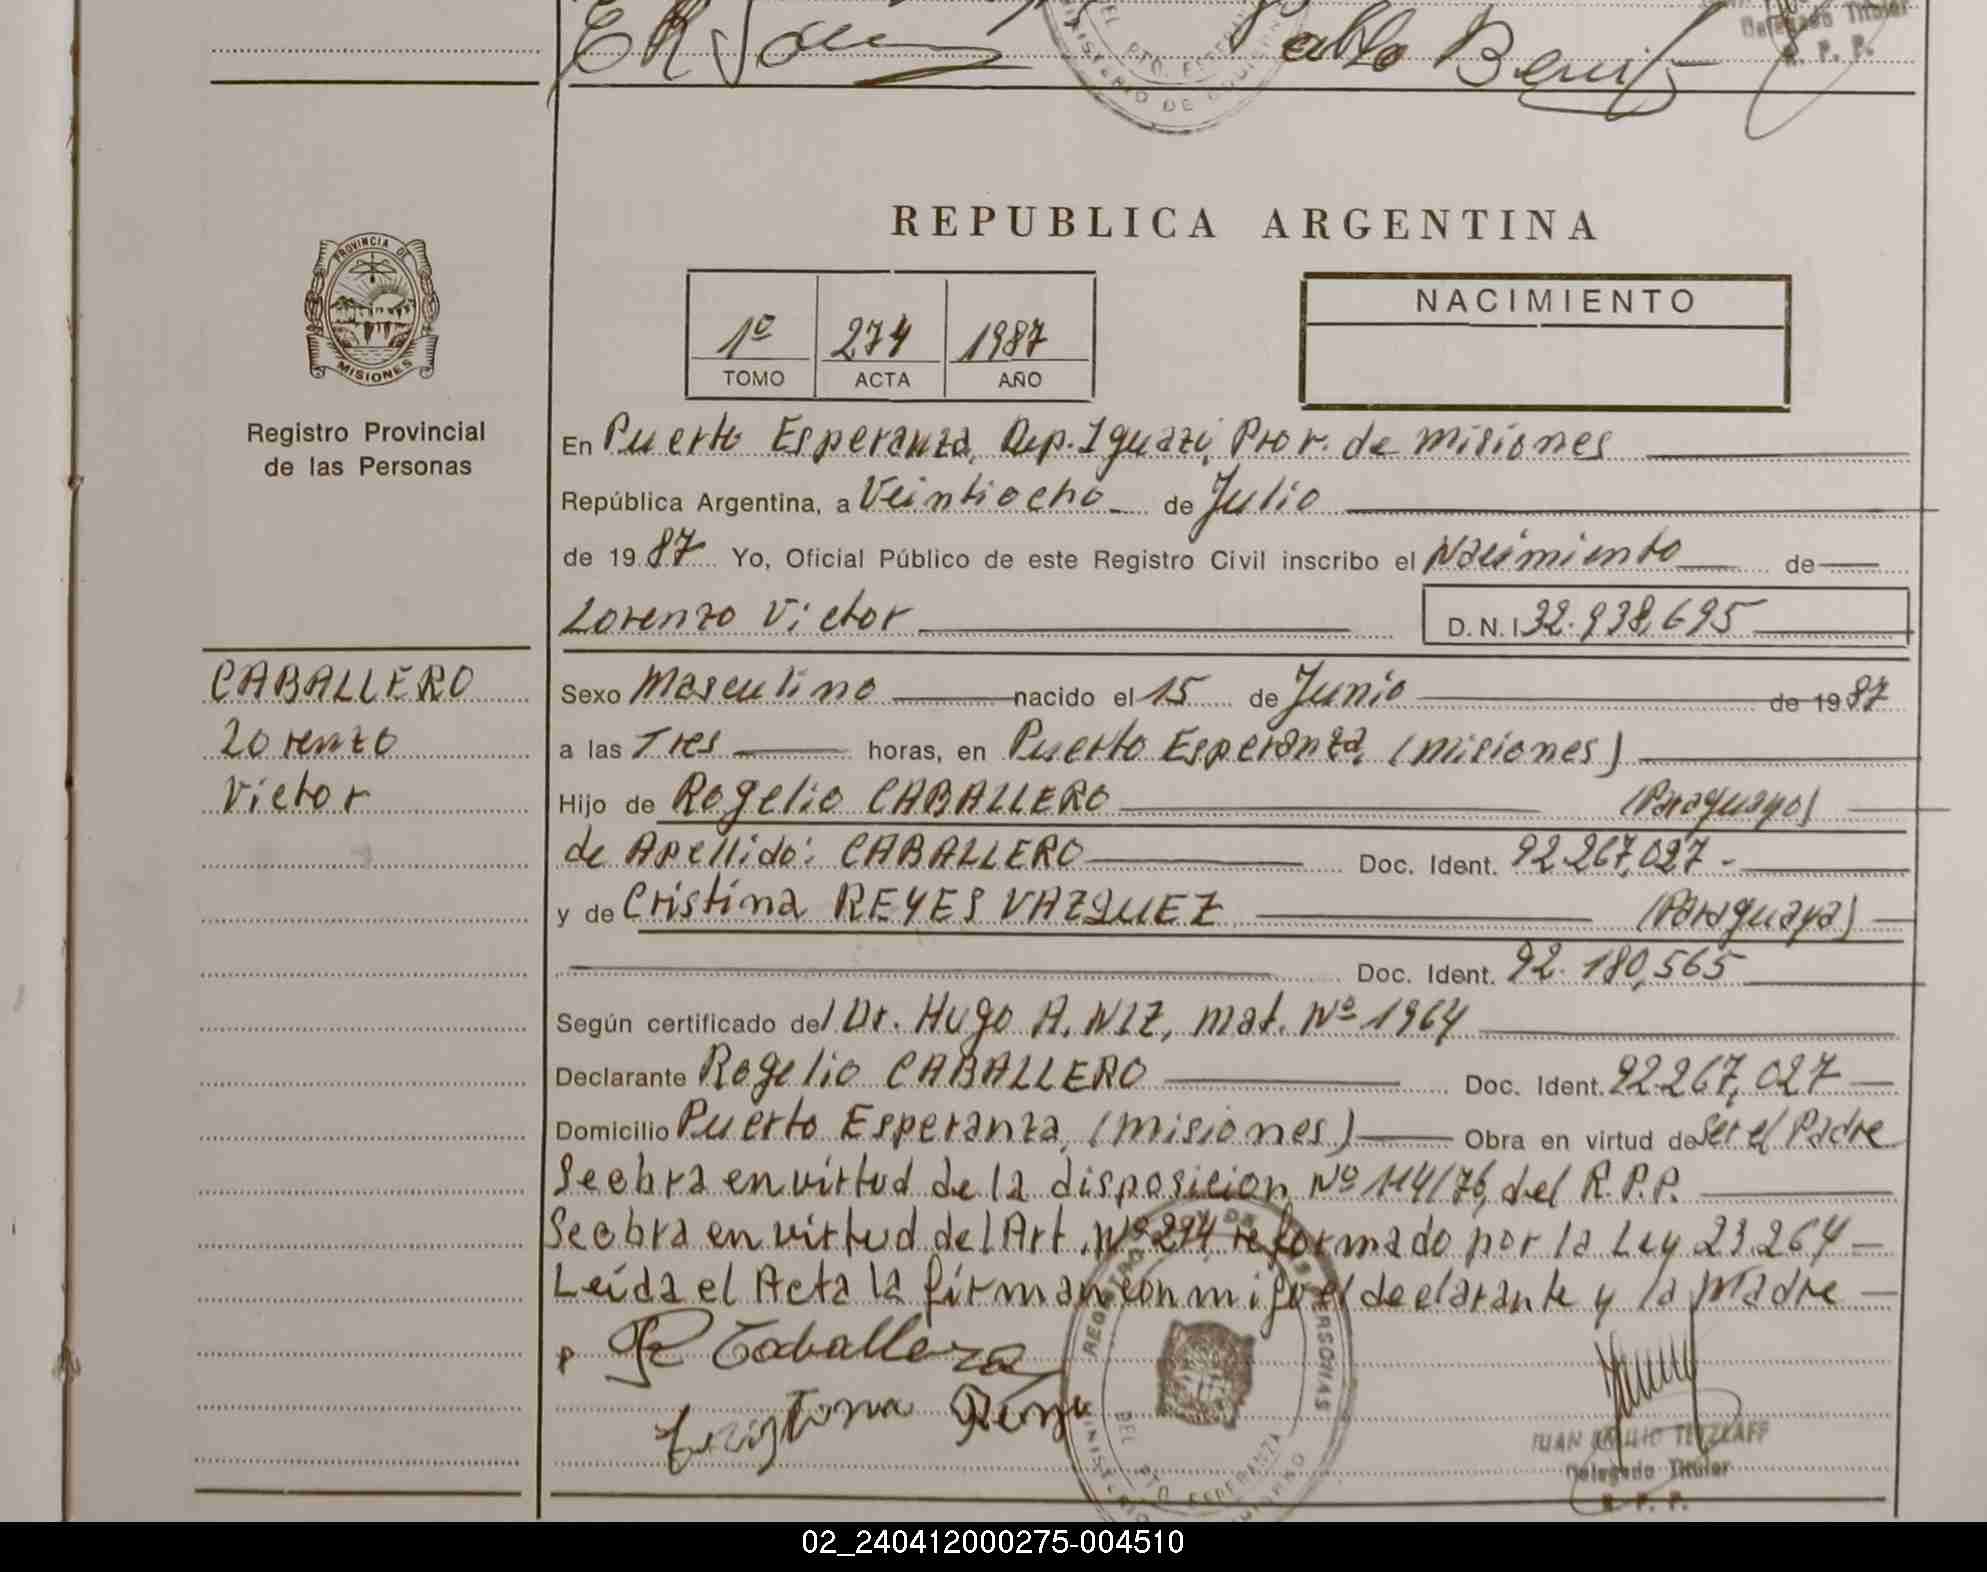 Pablo Benitez
Delegado Titular
R. P. P.
MINISTERIO DE GOBIERNO
REPUBLICA ARGENTINA
PROVINCIA DE
MISIONES
Registro Provincial
de las Personas
1º 274 1987
TOMO ACTA AÑO
NACIMIENTO
En Puerto Esperanza, Dep. Iguazú, Prov. de Misiones
República Argentina, a Veintiocho de Julio
de 1987 Yo, Oficial Público de este Registro Civil inscribo el Nacimiento de
Lorenzo Victor D.N.I 32.938,695
CABALLERO
Lorenzo
Victor
Sexo Masculino nacido el 15 de Junio de 1987
a las Tres horas, en Puerto Esperanza, (Misiones)
Hijo de Rogelio CABALLERO (Paraguayo)
de Apellido: CABALLERO Doc. Ident. 92.267,027-
y de Cristina REYES VAZQUEZ (Paraguaya)
Doc. Ident. 92.180,565
Según certificado del Dr. Hugo A. NIZ, mat. Nº 1964
Declarante Rogelio CABALLERO Doc. Ident. 92.267,027
Domicilio Puerto Esperanza, (Misiones) Obra en virtud de Ser el Padre
Se obra en virtud de la disposicion Nº 114/76, del R.P.P.
Se obra en virtud del Art. Nº 294 reformado por la Ley 23.264
Leída el Acta la firman conmigo el declarante y la Madre
R Caballero
Cristina Reye
REGISTRO DE PERSONAS
DEL PTO. ESPERANZA
JUAN EMILIO TETZLAFF
Delegado Titular
R. P. P.
02_240412000275-004510